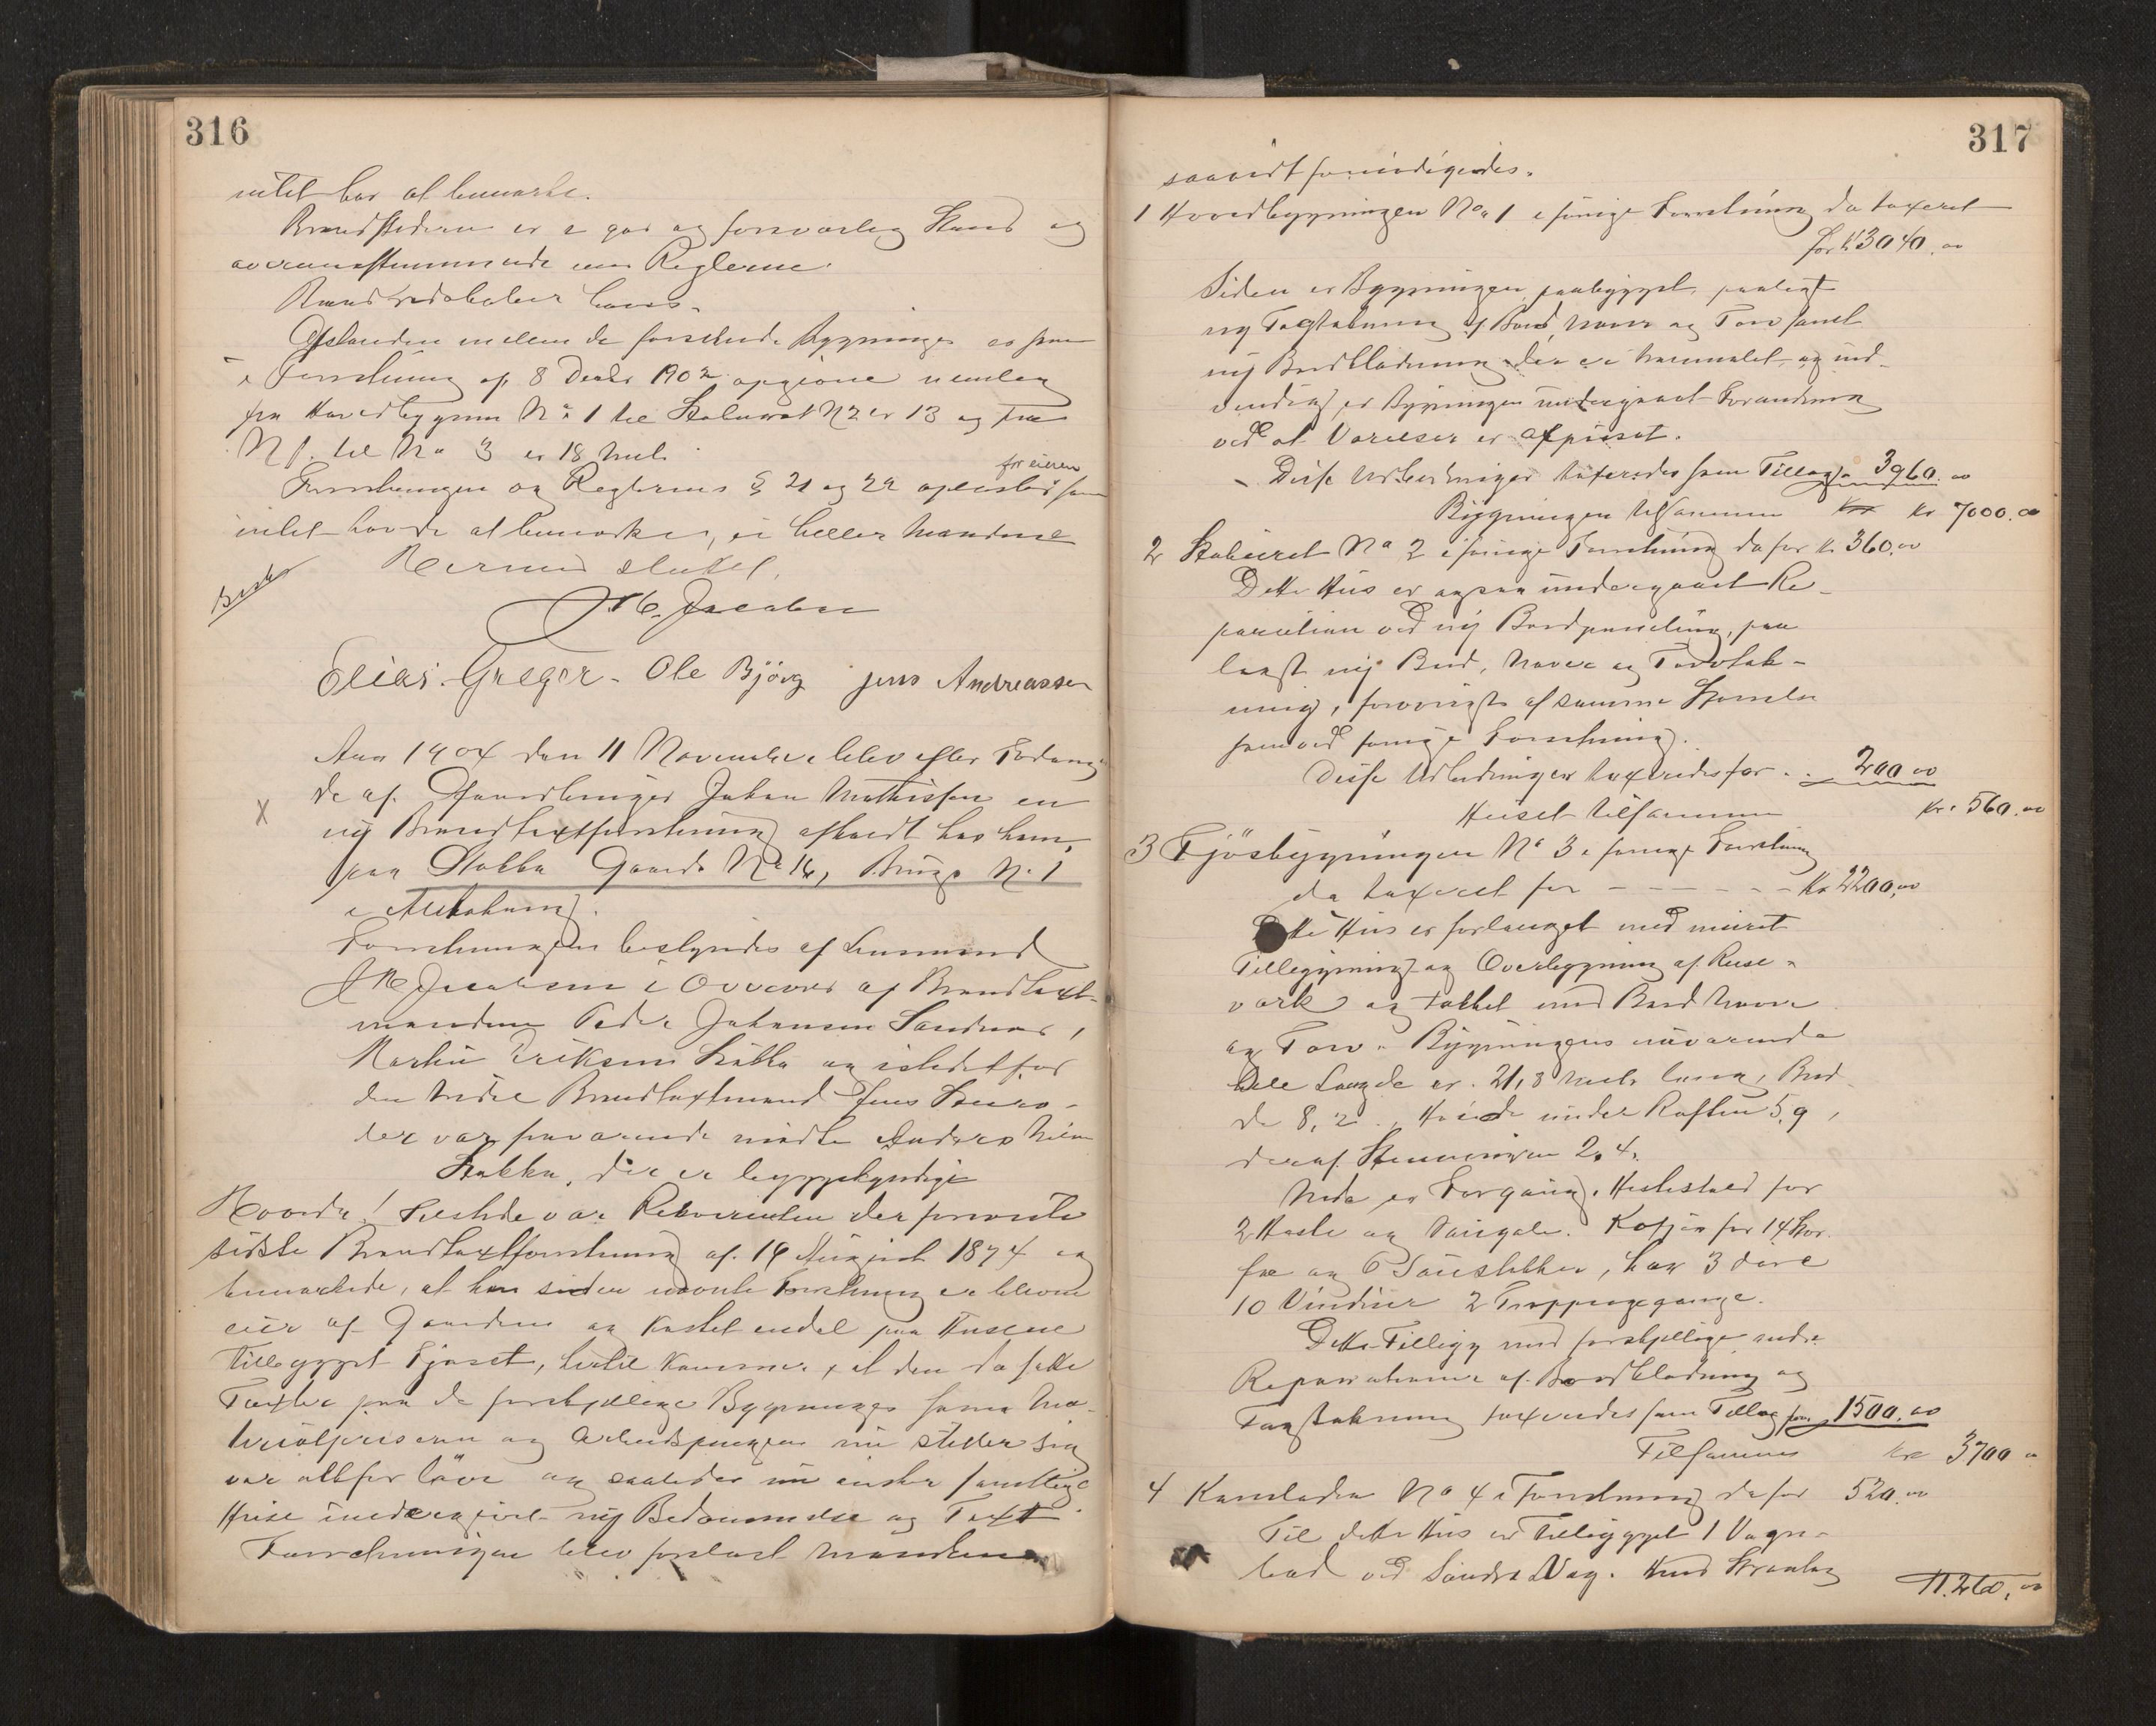 316
intet har at bemærke.
Brandstederne er i god og forsvarlig Stand og
overensstemmende med Reglerne.
Brandredskaber haves.
Afstanden mellem de forskjel. Bygninger er som
i Forretning af 8 Decbr 1902 opgivne nemlig
fra Hovedbygnin No 1 til Staburet N 2 er 13 og fra
N 1. til No 3 er 18 Met.
Forretningen og Reglernes § 21 og 22 oplæstes for eieren som
intet havde at bemærke, ei heller Mændene
Besk Herved sluttet.
J M. Jacobsen
Elias Greger - Ole Bjørg jens Andreassen
Aar 1904 den 11 November blev efter Forlangen
de af Gaardbruger Johan Mathissen en
X ny Brandtaxtforretning afholdt hos ham,
paa Stokka Gaards No 16, Brugs N. 1
i Alstahaug.
Forretningen bestyredes af Lensmand
J M Jacobsen i Overvær af Brandtaxt-
mændene Peder Johansen Sandnes,
Martin Eriksen Stokka og istedetfor
den tredie Brandtaxtmand Jens
der var fraværende mødte Anders
Stokka, der er byggekyndige
Tilstede var Rekvirenten der foreviste
sidste Brandtaxtforretning af 19 August 1874 og
bemærkede, at han siden nævnte Forretning er bleven
eier af Gaarden og kostet endel paa Husene
tilbygget Fjøset, at den da satte
Taxter paa de forskjellige Bygninger som Ma-
terialpriserne og Arbeidspengene nu stiller sig
var altfor lave og saaledes nu ønsker samtlige
Huse undergivet ny Bedømmelse og Taxt.
Forretningen blev forelæst Mændene
317
saavidt fornødigedes.
1 Hovedbygningen No 1 i forrige Forretning da taxeret
for k 3040.00
Siden er Bygningen paabygget, paalagt
ny Tagtækning af Bord, Næver og Torv samt
ny Bordklædning der er Hvidmalet og ind-
vendig er Bygningen undergaaet Forandring
ved at Værelser er afpudset.
Disse Udbedringer taxeredes som Tillæg 3960.00
Bygningen tilsammen kr 7000.00
2 Staburet No 2 i forrige Forretning da for k. 360.00
Dette Hus er ogsaa undergaaet Re-
paration ved ny Bordpaneling, paa
lagt ny Bord, Næver og Torvtæk-
ning, forøvrigt af samme Størrelse
som ved forrige Forretning.
Disse Udbedringer taxeredes for . . 200.00
Huset tilsammen kr. 560.00
3 Fjøsbygningen No 3 i forrige Forretning
da taxeret for - - - - - - Kr 2200.00
Dette Hus er forlænget med muret
Tilbygning og Overbygning af Reise-
værk og tækket med Bord Næver
og Torv. Bygningens nuværende
hele Længde er. 21,8 Met. lang, Bred
de 8,2., Høide under Raften 5,9,
deraf Stenmuren 2,4.
Nede er Forgang, Hestestald for
2 Heste og Kofjøs for 14 Stor
fæ og 6 Sauestebber, har 3 døre
10 Vinduer 2 Trappeopgange.
Dette Tillegg med forskjellige andre
Reparationer af Bordklædning og
Tagtækning taxeredes som Tillæg for 1500.00
Tilsammen kr 3700.00
4 Kornladen No 4 i Forretning da for 520.00
Til dette Hus er tilbygget 1 Vogn-
bod ved Søndre Væg.
11.260.00